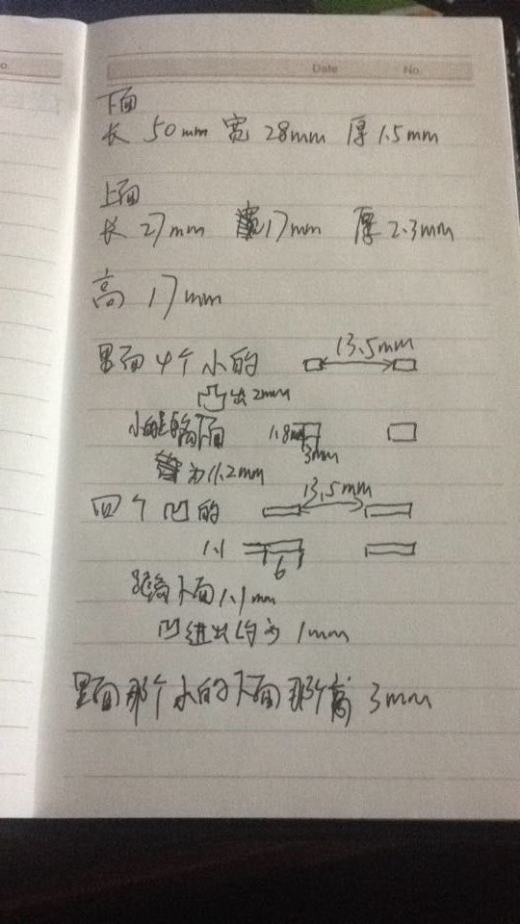 o.
Date No.
下面
长 50mm 宽 28mm 厚 1.5mm
上面
长 27mm 宽17mm 厚 2.3mm
高 17mm
里面 4个小的 13.5mm
凸出 2mm
小的距离下面 1.8mm
3mm
为 11.2mm
四个凹的 13.5mm
1.1
6
距离下面 1.1mm
凹进出约为 1mm
里面那个小的下面那个高 3mm